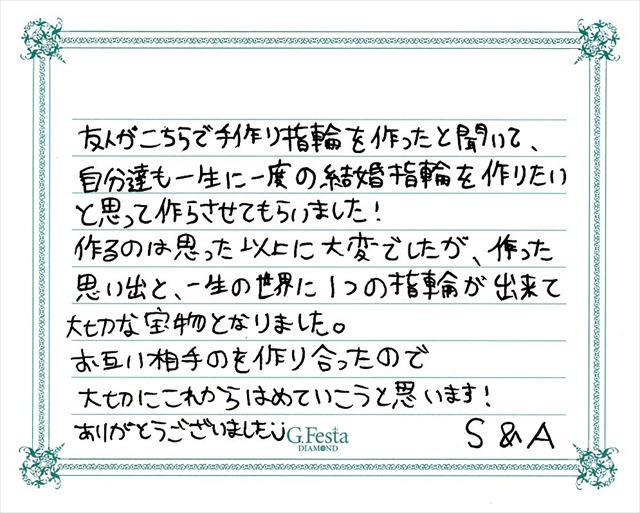 友人がこちらで手作り指輪を作ったと聞いて、
自分達も一生に一度の結婚指輪を作りたい
と思って作らさせてもらいました!
作るのは思った以上に大変でしたが、作った
思い出と、一生の世界に1つの指輪が出来て
大切な宝物となりました。
お互い相手のを作り合ったので
大切にこれからはめていこうと思います!
ありがとうございました
G.Festa
DIAMOND
S & A